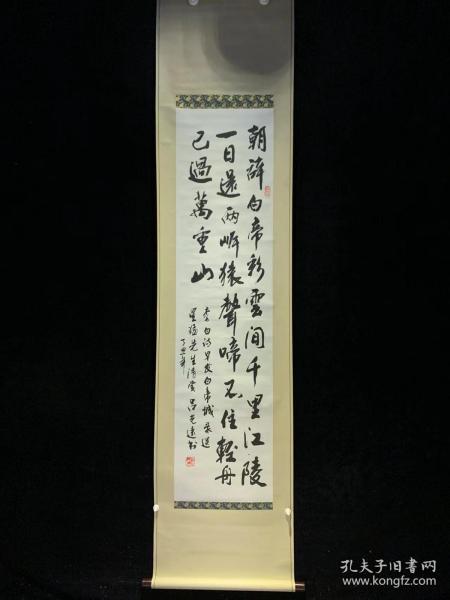 朝辞白帝彩雲间千里江陵
一日還两岸猿聲啼不住輕舟
已過萬重山
李白诗早发白帝城 录送
先生清赏
丁丑年
孔夫子旧书网
www.kongfz.com